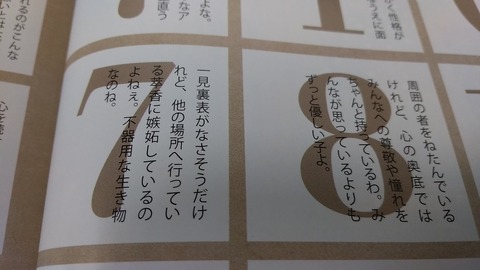 るよな。
なア
直う
かく性格が
うえに面
れるのがこんな
8
周囲の者をねたんでいる
けれど、心の奥底では
みんなへの尊敬や憧れを
ちゃんと持っているわ。み
んなが思っているよりも
ずっと優しい子よ。
7
一見裏表がなさそうだけ
れど、他の場所へ行ってい
る萃香に嫉妬しているの
よねぇ。不器用な生き物
なのね。